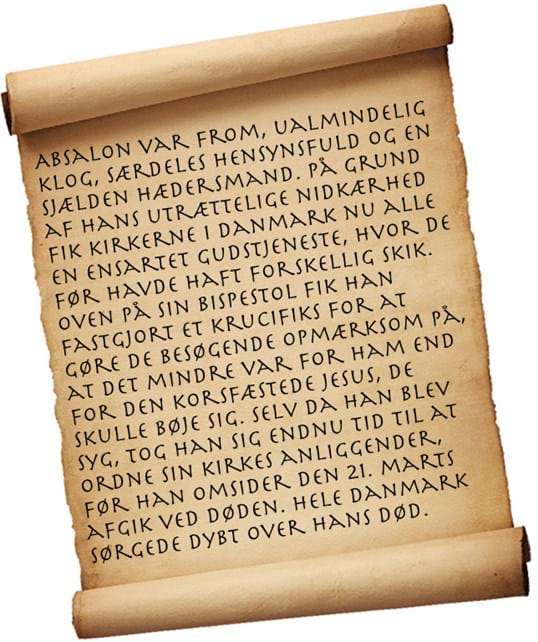 ABSALON VAR FROM, UALMINDELIG
KLOG, SÆRDELES HENSYNSFULD OG EN
SJÆLDEN HÆDERSMAND. PÅ GRUND
AF HANS UTRÆTTELIGE NIDKÆRHED
FIK KIRKERNE I DANMARK NU ALLE
EN ENSARTET GUDSTJENESTE, HVOR DE
FØR HAVDE HAFT FORSKELLIG SKIK.
OVEN PÅ SIN BISPESTOL FIK HAN
FASTGJORT ET KRUCIFIKS FOR AT
GØRE DE BESØGENDE OPMÆRKSOM PÅ,
AT DET MINDRE VAR FOR HAM END
FOR DEN KORSFÆSTEDE JESUS, DE
SKULLE BØJE SIG. SELV DA HAN BLEV
SYG, TOG HAN SIG ENDNU TID TIL AT
ORDNE SIN KIRKES ANLIGGENDER,
FØR HAN OMSIDER DEN 21. MARTS
AFGIK VED DØDEN. HELE DANMARK
SØRGEDE DYBT OVER HANS DØD.